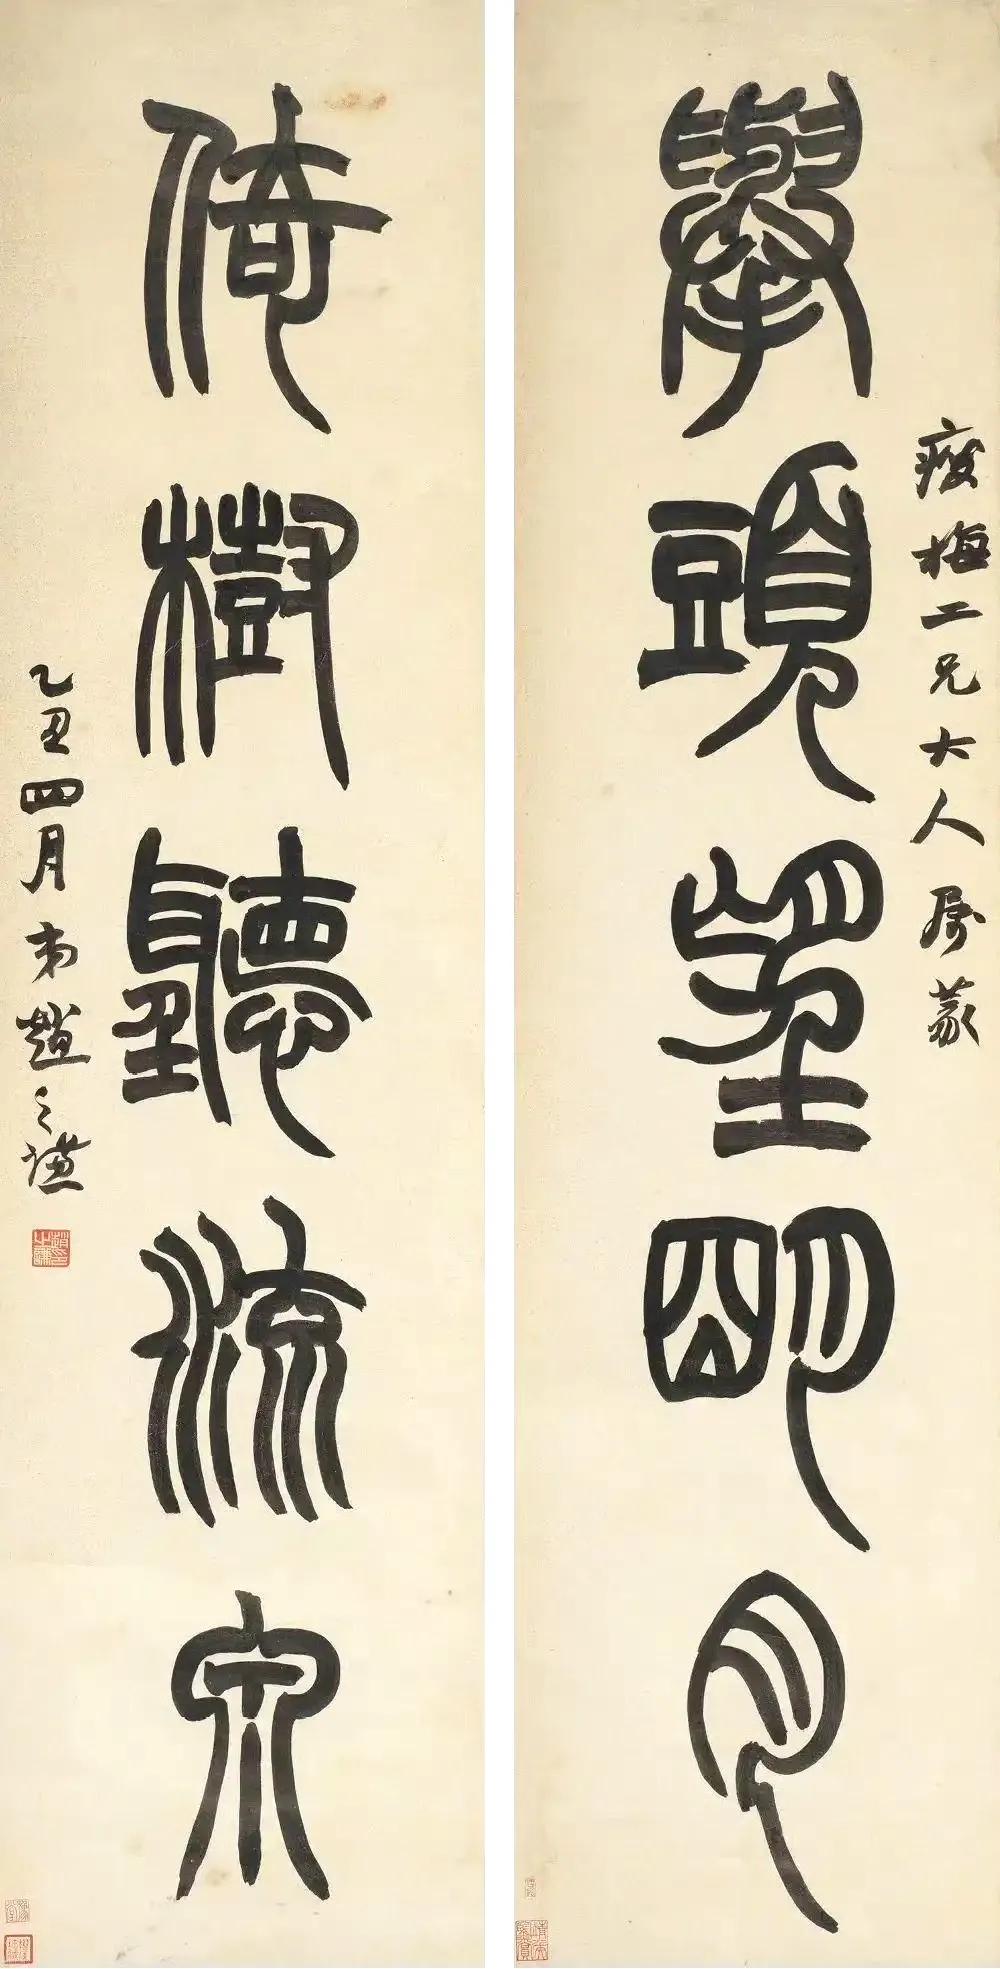 舉頭望明月
瘦梅二兄大人屬篆
倚樹聽流泉
乙丑四月弟趙之謙